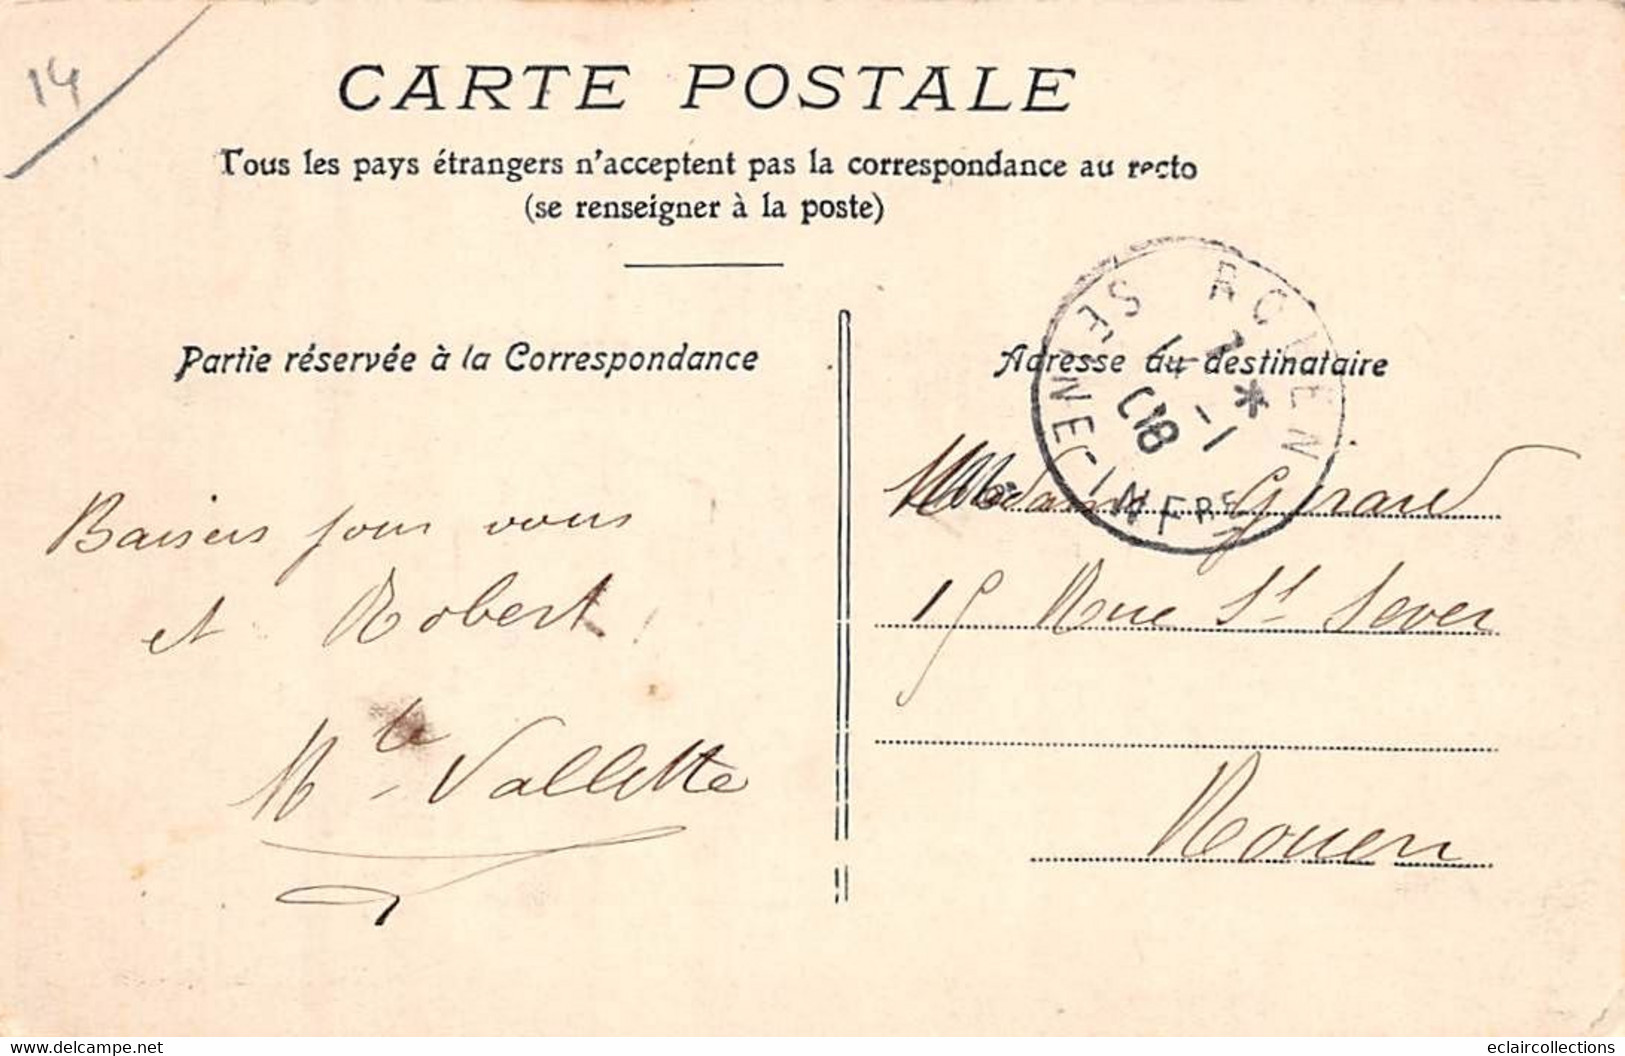 14
CARTE POSTALE
Tous les pays étrangers n'acceptent pas la correspondance au recto
(se renseigner à la poste)
Partie réservée à la Correspondance
Baisers pour vous
et Robert
Mle Vallette
Adresse du destinataire
ROUEN
SEINE-INFRE
Madame Girard
15 Rue St Sever
Rouen
www.delcampe.net
eclaircollections